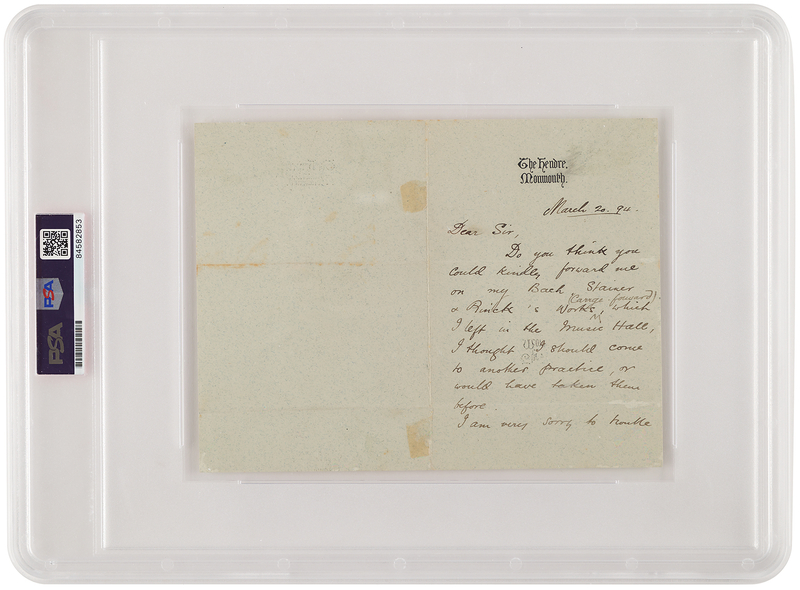 The Hendre,
Monmouth.
March 20. 94.
Dear Sir,
Do you think you
could kindly forward me
on my Bach Stainer
(Carriage forward)
& Rinck's Works, which
I left in the Music Hall,
I thought I should come
to another practice, or
would have taken them
before.
I am very sorry to trouble
PSA
PSA
84582853